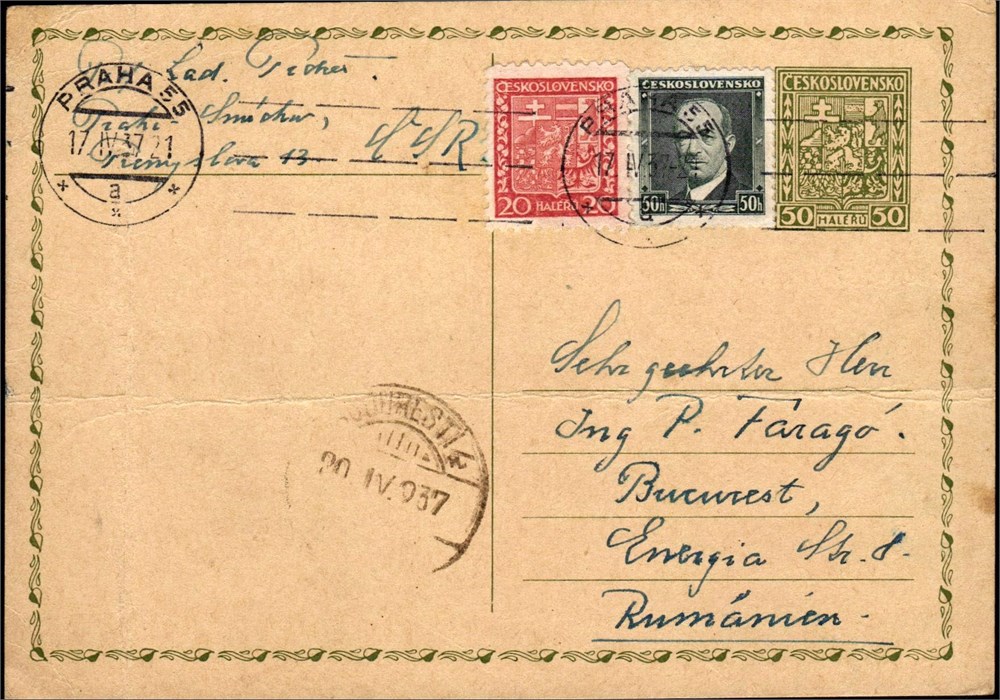 Lad.
PRAHA 55
17.IV.37.21
a
Praha Smíchov,
Přemyslova 13
ČSR.
ČESKOSLOVENSKO
20 HALÉŘŮ 20
ČESKOSLOVENSKO
50h 50h
ČESKOSLOVENSKO
50 HALÉŘŮ 50
PRAHA 55
17.IV.37-21
a
Sehr geehrter Herr
Ing P. Faragó.
Bucurest,
Energia Str. 8.
Rumänien.
BUCUREȘTI 4
20 IV.937